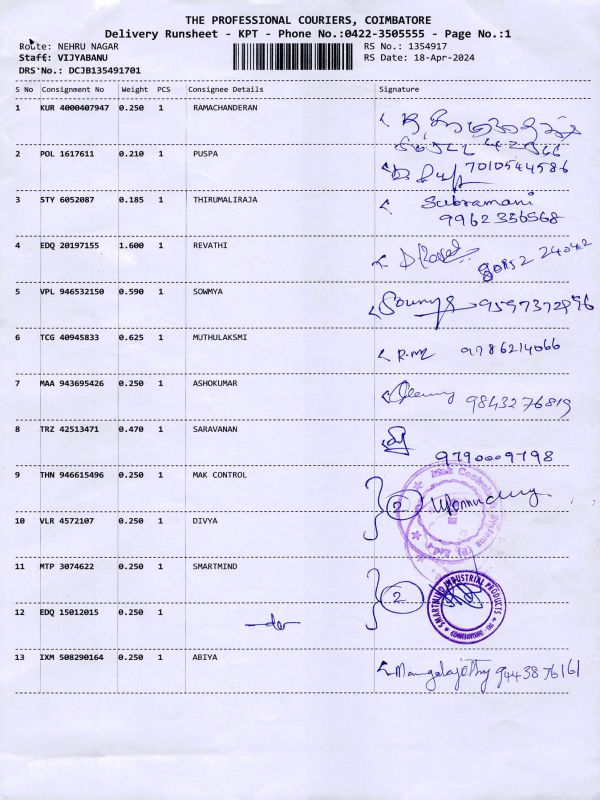 THE PROFESSIONAL COURIERS, COIMBATORE
Delivery Runsheet - KPT - Phone No.:0422-3505555 - Page No.:1
Route: NEHRU NAGAR
RS No.: 1354917
Staff: VIJYABANU
RS Date: 18-Apr-2024
DRS No.: DCJB135491701
S No Consignment No Weight PCS Consignee Details Signature
1 KUR 4000407947 0.250 1 RAMACHANDERAN
2 POL 1617611 0.210 1 PUSPA
7010544586
3 STY 6052087 0.185 1 THIRUMALIRAJA Subramani
9962356568
4 EDQ 20197155 1.600 1 REVATHI
5 VPL 946532150 0.590 1 SOWMYA Sowmya
6 TCG 40945833 0.625 1 MUTHULAKSMI
9786214066
7 MAA 943695426 0.250 1 ASHOKUMAR
9843276819
8 TRZ 42513471 0.470 1 SARAVANAN
9790009798
9 THN 946615496 0.250 1 MAK CONTROL 2
10 VLR 4572107 0.250 1 DIVYA
11 MTP 3074622 0.250 1 SMARTMIND 2
SMARTMIND INDUSTRIAL PRODUCTS
12 EDQ 15012015 0.250 1
13 IXM 508290164 0.250 1 ABIYA 9443876161